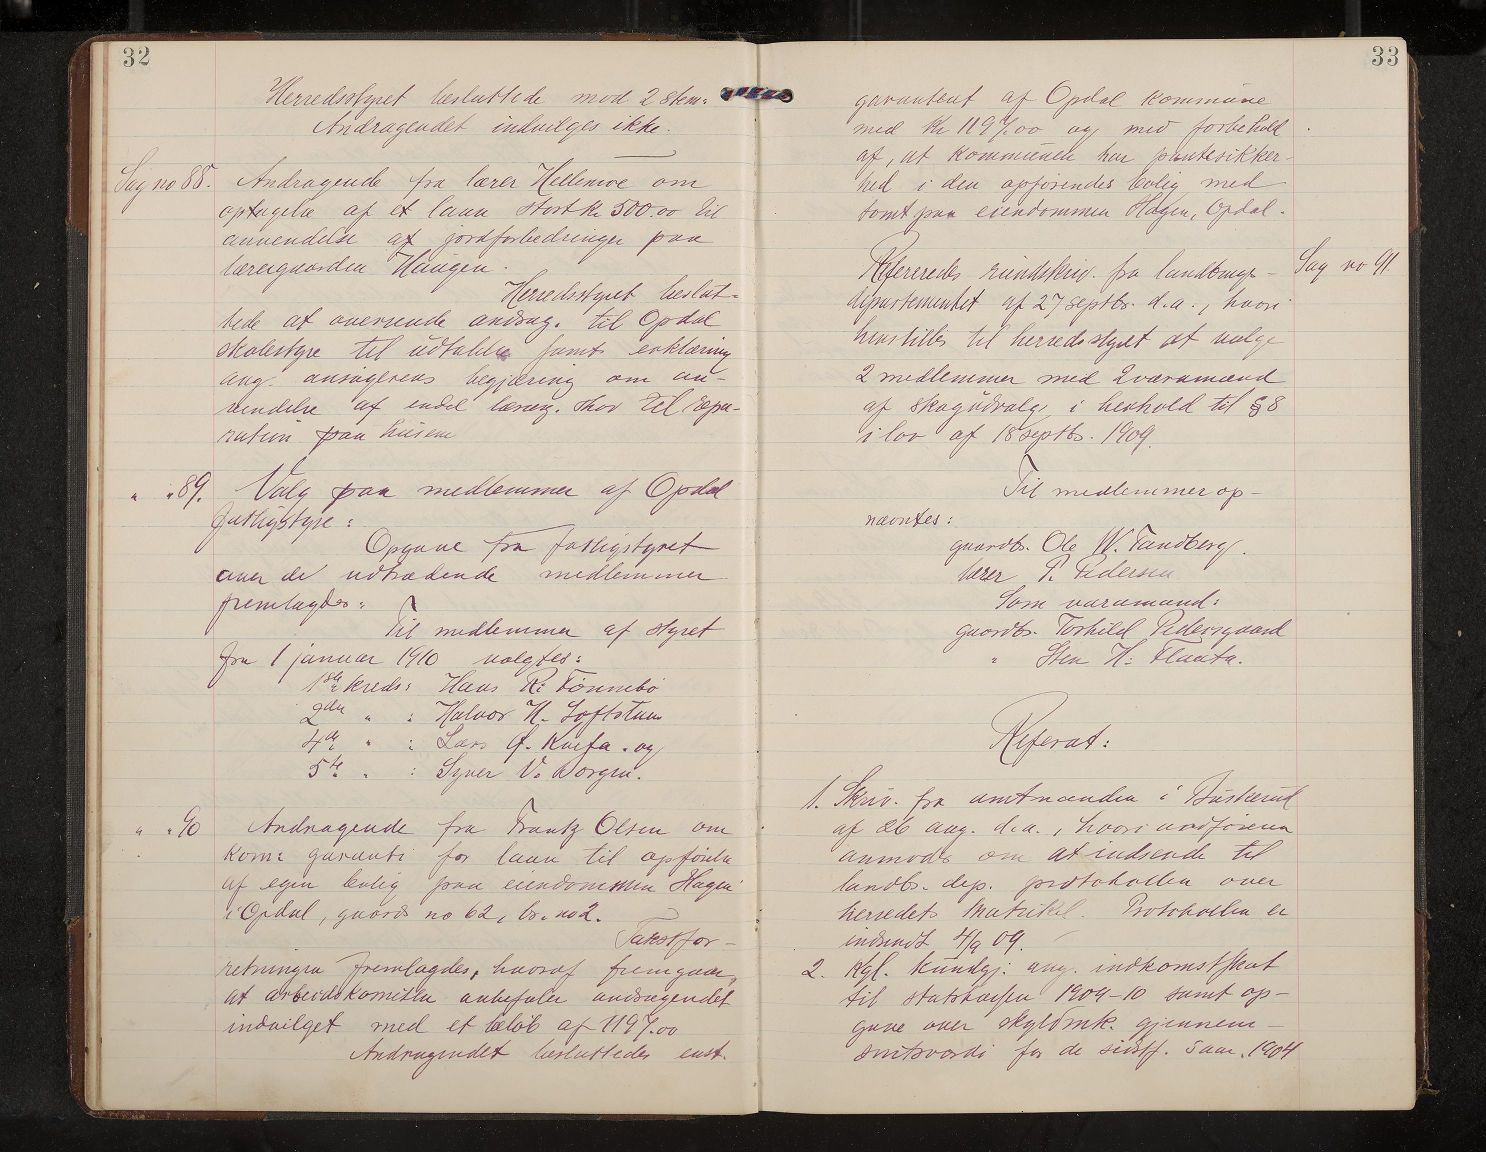 32
Herredsstyret besluttede mod 2 stem:
Andragendet indvilges ikke.
Sag no 88. Andragende fra lærer Hellemoe om
optagelse af et laan stort kr 500.00 til
anvendelse af jordforbedringer paa
lærergaarden Haugen.
Herredsstyret beslut-
tede at oversende andrag. til Opdal
skolestyre til udtalelse samt erklæring
ang. ansøgerens begjæring om an-
vendelse af endel skov til repa-
ration paa husene
" " 89. Valg paa medlemmer af Opdal
fattigstyre:
Opgave fra fattigstyret
over de udtrædende medlemmer
fremlagdes:
Til medlemmer af styret
fra 1 januar 1910 valgtes:
1ste kreds: Hans R. Tønnebø
2den " : Halvor H. Loftstuen
4de " : Lars O. Kvefa. og
5te " : Syver V. Borgen.
" " 90 Andragende fra Frantz Olsen om
kom: garanti for laan til opførelse
af egen bolig paa eiendommen Hagen
i Opdal, gaards no 62, br. no 2.
Takstfor-
retningen fremlagdes, hvoraf fremgaar,
at arbeidskomiteen anbefaler andragendet
indvilget med et beløb af 1197.00
Andragendet besluttedes enst.
33
garanteret af Opdal kommune
med Kr 1197.00 og med forbehold
af, at kommunen har pantesikker-
hed i den opførendes bolig med
tomt paa eiendommen Hagen, Opdal.
Refereredes rundskriv. fra landbrugs- Sag no 91
departementet af 27 septbr. d.a., hvori
henstilles til herredsstyret at vælge
2 medlemmer med 2 varamænd
af skogudvalg i henhold til § 8
i lov af 18 septbr. 1909.
Til medlemmer op-
nævntes:
gaardbr. Ole W. Tandberg.
lærer P. Pedersen
Som varamænd:
gaardbr. Torhild Pedersgaard
" Sten H. Flaata.
Referat:
1. Skriv. fra amtmanden i Buskerud
af 26 aug. d.a., hvori ordføreren
anmodes om at indsende til
landbr. dep. protokollen over
herredets Matrikel. Protokollen er
indsendt 4/9 09.
2. Kgl. kundgj. ang. indkomstskat
til statskassen 1909-10 samt op-
gave over skyldmk. gjennem-
snitsværdi for de sidstf. 5 aar. 1904